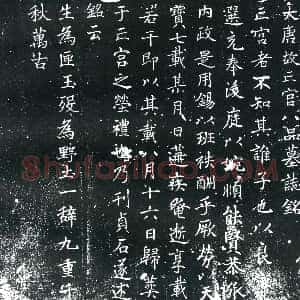 大唐故三宫八品墓誌銘
亡三宫者不知其誰子也以良
選充奉後庭以婉順佐賢恭
内政是用錫以班秩酬乎厥勞以天
寶七載某月日遘疾奄逝享載
若干即以其載八月十六日歸葬
于亡宫之塋禮也乃刊貞石遂述
銘云
生為匣玉殁為野一辭九重
秋萬古
Shufaziliao.com